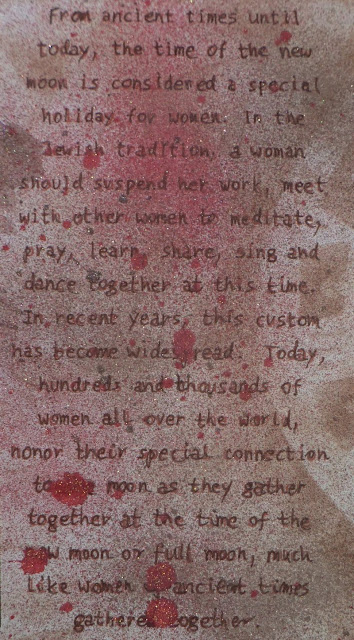 From ancient times until
today, the time of the new
moon is considered a special
holiday for women. In the
Jewish tradition, a woman
should suspend her work, meet
with other women to meditate,
pray, learn, share, sing and
dance together at this time.
In recent years, this custom
has become widespread. Today,
hundreds and thousands of
women all over the world,
honor their special connection
to the moon as they gather
together at the time of the
new moon or full moon, much
like women of ancient times
gathered together.